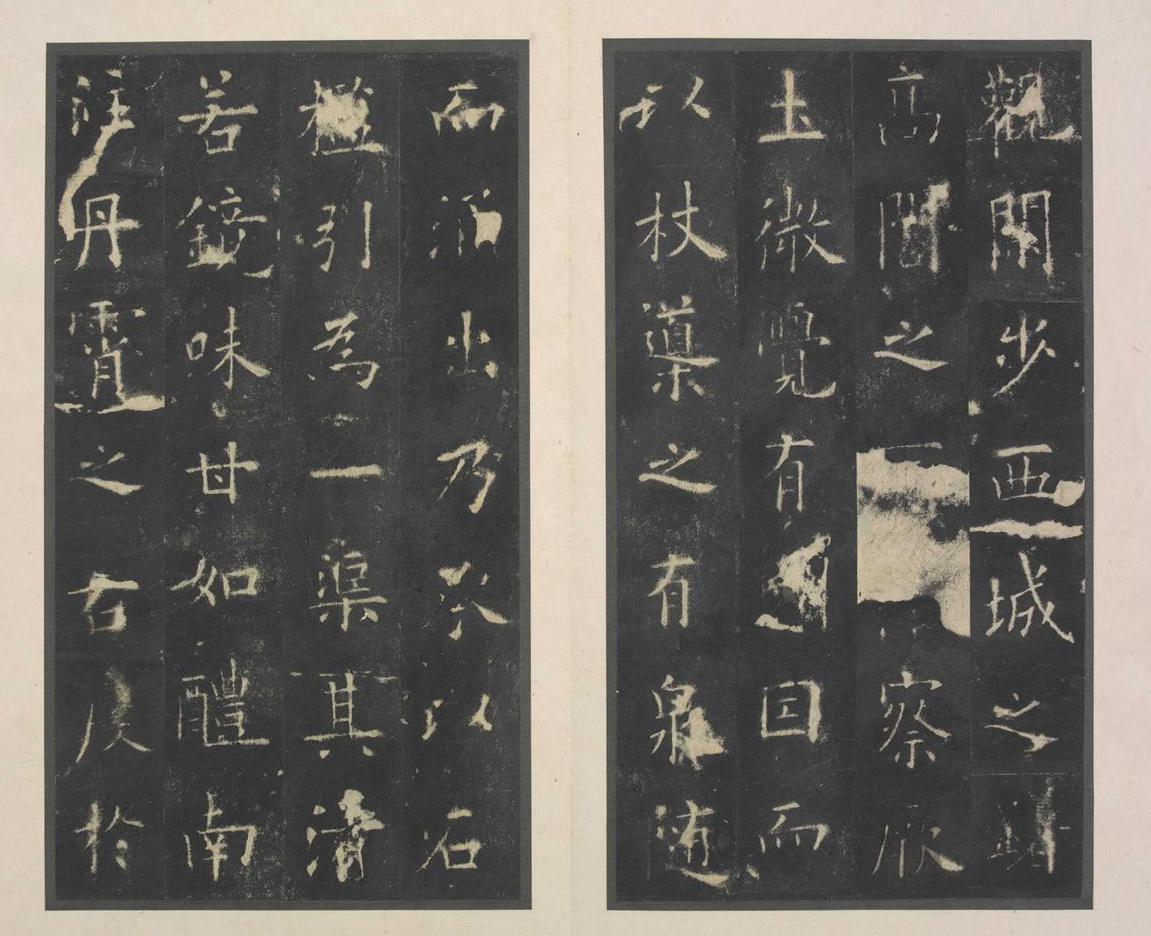 觀閑步西城之
高閣之察厥
土微覺有因而
以杖導之有泉隨
而涌出乃承以石
檻引為一渠其清
若鏡味甘如醴南
注丹霄之右於